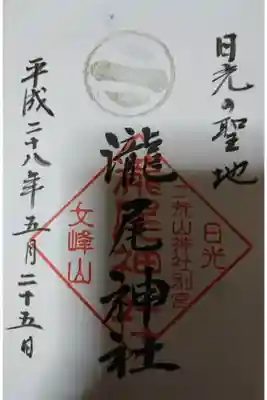 日光の聖地
日光
二荒山神社別宮
瀧尾神社
女峰山
平成二十八年五月二十五日